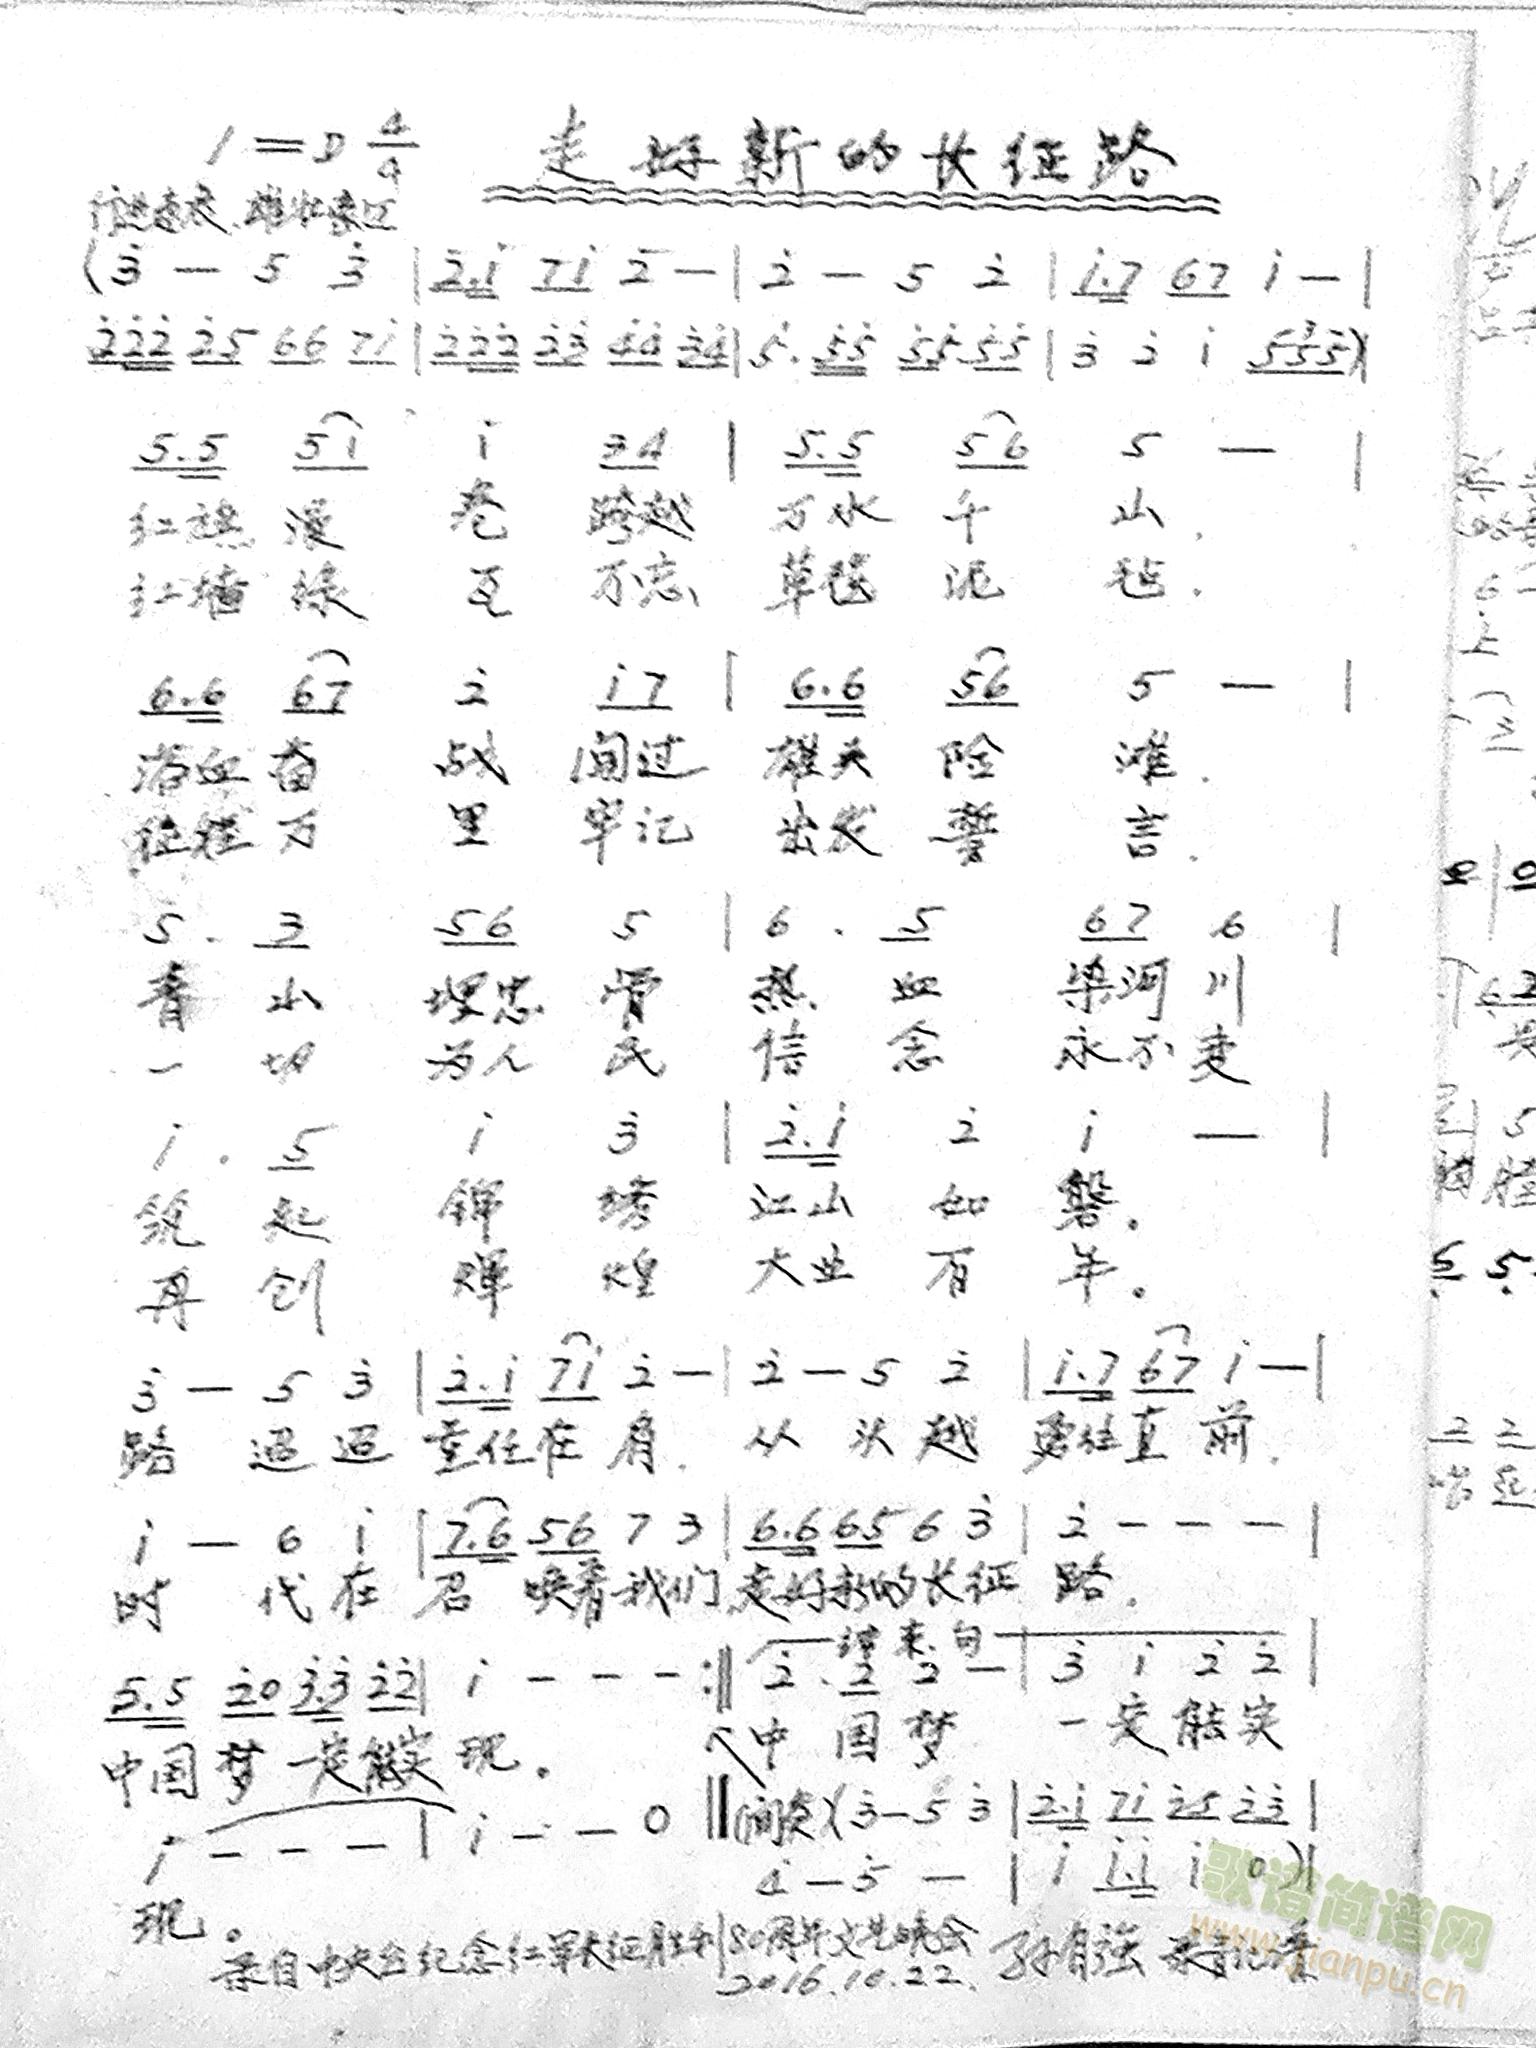 1=D 4/4 走好新的长征路
行进速度、雄壮豪迈
(3̇ — 5 3̇ | 2̇.1̇ 71̇ 2̇ — | 2̇ — 5 2̇ | 1̇.7 67 1̇ — |
2̇2̇2̇ 2̇5 66 71̇ | 2̇2̇2̇ 2̇3̇ 4̇4̇ 3̇4̇ | 5̇. 5̇5̇ 5̇5̇ 5̇5̇ | 3̇ 2̇ 1̇ 555) |
5.5 51̇ 1̇ 34 | 5.5 56 5 — |
红旗 漫 卷 跨越 万水 千 山,
红墙 绿 瓦 不忘 草毯 泥 毡.
6.6 67 2̇ 1̇7 | 6.6 56 5 — |
浴血 奋 战 闯过 雄关 险 滩.
征程 万 里 牢记 出发 誓 言.
5. 3 56 5 | 6. 5 67 6 |
青 山 埋忠 骨 热 血 染河 川
一 切 为人 民 信 念 永不 变
1̇. 5 1̇ 3̇ | 2̇.1̇ 2̇ 1̇ — |
筑 起 锦 绣 江山 如 磐。
再 创 辉 煌 大业 百 年。
3̇ — 5 3̇ | 2̇.1̇ 71̇ 2̇ — | 2̇ — 5 2̇ | 1̇.7 67 1̇ — |
路 迢迢 重任在 肩. 从 头 越 勇往直 前.
1̇ — 6 1̇ | 7.6 56 7 3 | 6.6 65 6 3̇ | 2̇ — — — |
时 代 在 召 唤着我们 走好新的长征 路.
结束句
5.5 2̇0 3̇.3̇ 2̇2̇ | 1̇ — — — :‖ 2̇. 2̇ 2̇ — | 3̇ 1̇ 2̇ 2̇ |
中国 梦 一定能实 现。 中 国 梦 一 定 能 实
1̇ — — — | 1̇ — — 0 ‖ (间奏)(3̇ — 5 3̇ | 2̇.1̇ 71̇ 2̇5 2̇3̇ |
4̇ — 5̇ — | 1̇ 1̇.1̇ 1̇ 0) |
现。
录自中央台纪念红军长征胜利80周年文艺晚会 孙自强 录音记谱
2016.10.22.
歌谱简谱网
www.jianpu.cn